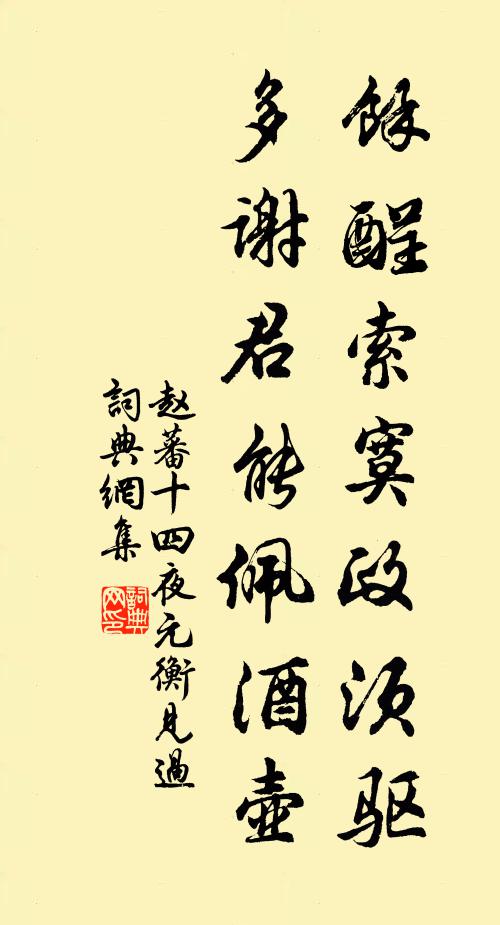 餘醒索寞政须驱
多谢君能佩酒壶
赵蕃十四夜元衡见過
詞典網集
詞典
网印